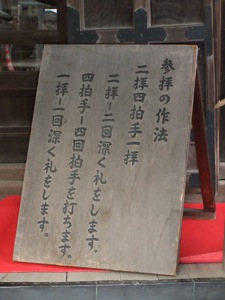 参拝の作法
二拝四拍手一拝
二拝ー二回深く礼をします。
四拍手ー四回拍手を打ちます。
一拝ー一回深く礼をします。